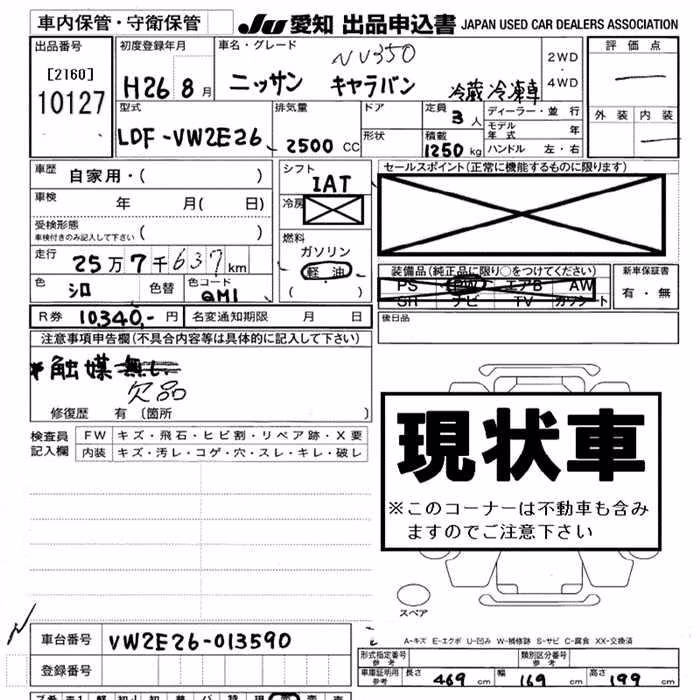 車内保管・守衛保管 JU 愛知 出品申込書 JAPAN USED CAR DEALERS ASSOCIATION
出品番号 [2160] 10127
初度登録年月 H26 8月
車名・グレード NV350
ニッサン キャラバン 冷蔵冷凍車
2WD・4WD
評価点
外装 内装
型式 LDF-VW2E26
排気量 2500 CC
ドア 形状
定員 3人
積載 1250 kg
ディーラー・並行
モデル年式 年
ハンドル 左・右
車歴 自家用・( )
車検 年 月( 日)
受検形態
車検付きのみ記入して下さい
走行 25万7千637km
色 シロ 色替 色コード QM1
シフト IAT
冷房
燃料
ガソリン
軽油
( )
セールスポイント(正常に機能するものに限ります)
装備品(純正品に限り○をつけてください)
PS PW エアB AW
SR ナビ TV カワシート
新車保証書
有・無
R券 10,340.- 円 名変通知期限 月 日
後日品
注意事項申告欄(不具合内容等は具体的に記入して下さい)
*触媒 無し
欠品
修復歴 有 〔箇所 〕
検査員記入欄
FW キズ・飛石・ヒビ割・リペア跡・X要
内装 キズ・汚レ・コゲ・穴・スレ・キレ・破レ
現状車
※このコーナーは不動車も含み
ますのでご注意下さい
スペア
A-キズ E-エクボ U-凹み W-補修跡 S-サビ C-腐食 XX-交換済
車台番号 VW2E26-013590
登録番号
型式指定番号 参考
類別区分番号 参考
車庫証明用 参考 長さ 469 cm 幅 169 cm 高さ 199 cm